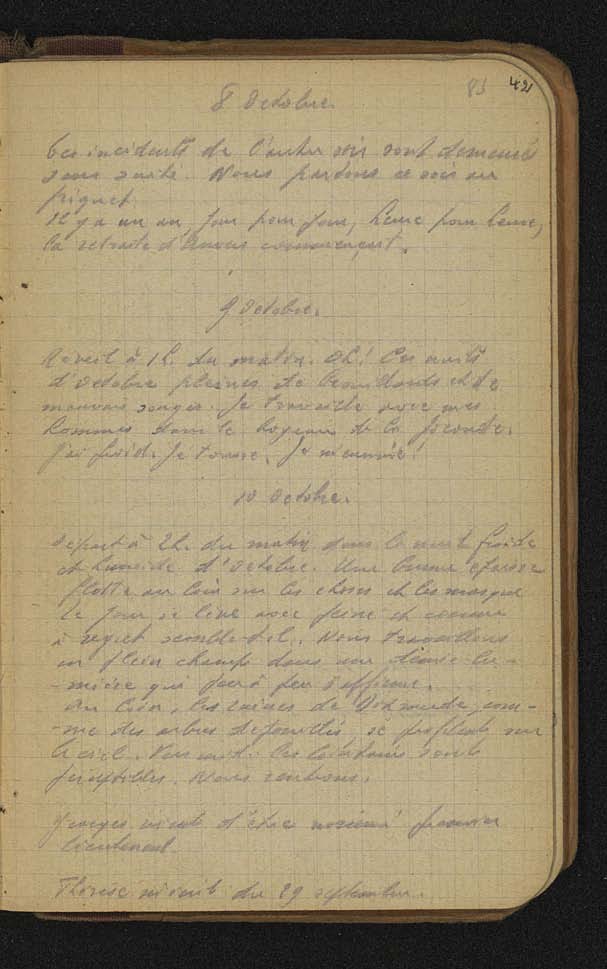 83 421
8 Octobre.
Les incidents de l'autre soir sont demeurés
sans suite. Nous partons ce soir au
piquet
Il y a un an, jour pour jour, heure pour heure,
la retraite d'Anvers commençait.
9 Octobre.
Réveil à 1h. du matin. Oh! Ces nuits
d'Octobre pleines de et de
mauvais songes. Je travaille avec mes
hommes dans le boyau de la
J'ai froid. Je tousse. Je m'ennuie!
10 Octobre.
Départ à 2h. du matin dans la nuit froide
et humide d'Octobre. Une brume épaisse
flotte au loin sur les choses et les masque
Le jour se lève avec peine et comme
à regret semble-t-il. Nous travaillons
en plein champs dans une demie-lu-
-mière qui peu à peu s'affirme.
Au loin, les ruines de Dixmude, com-
-me des arbres dépouillés, se profilent sur
le ciel. Vers midi les lointains sont
perceptibles. Nous rentrons.
Georges vient d'être nommé premier
lieutenant.
Thérèse m'écrit du 29 septembre.